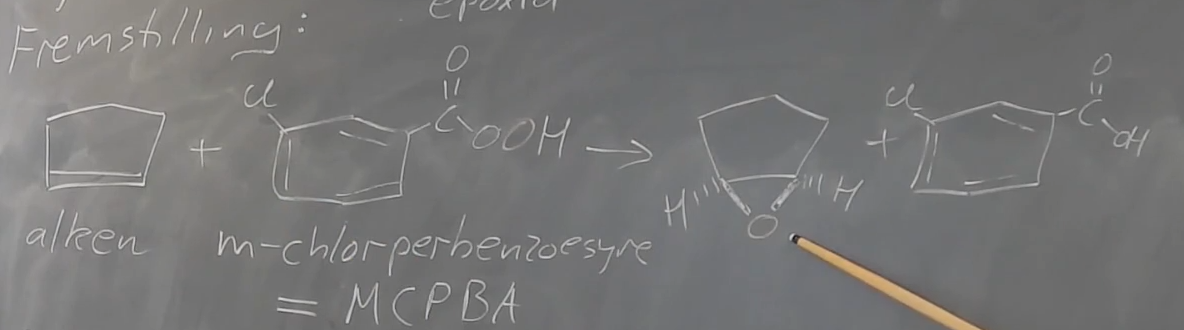 epoxid
Fremstilling:
Cl O || C OOH
+ → H O H + Cl O || C OH
alken m-chlorperbenzoesyre
= MCPBA